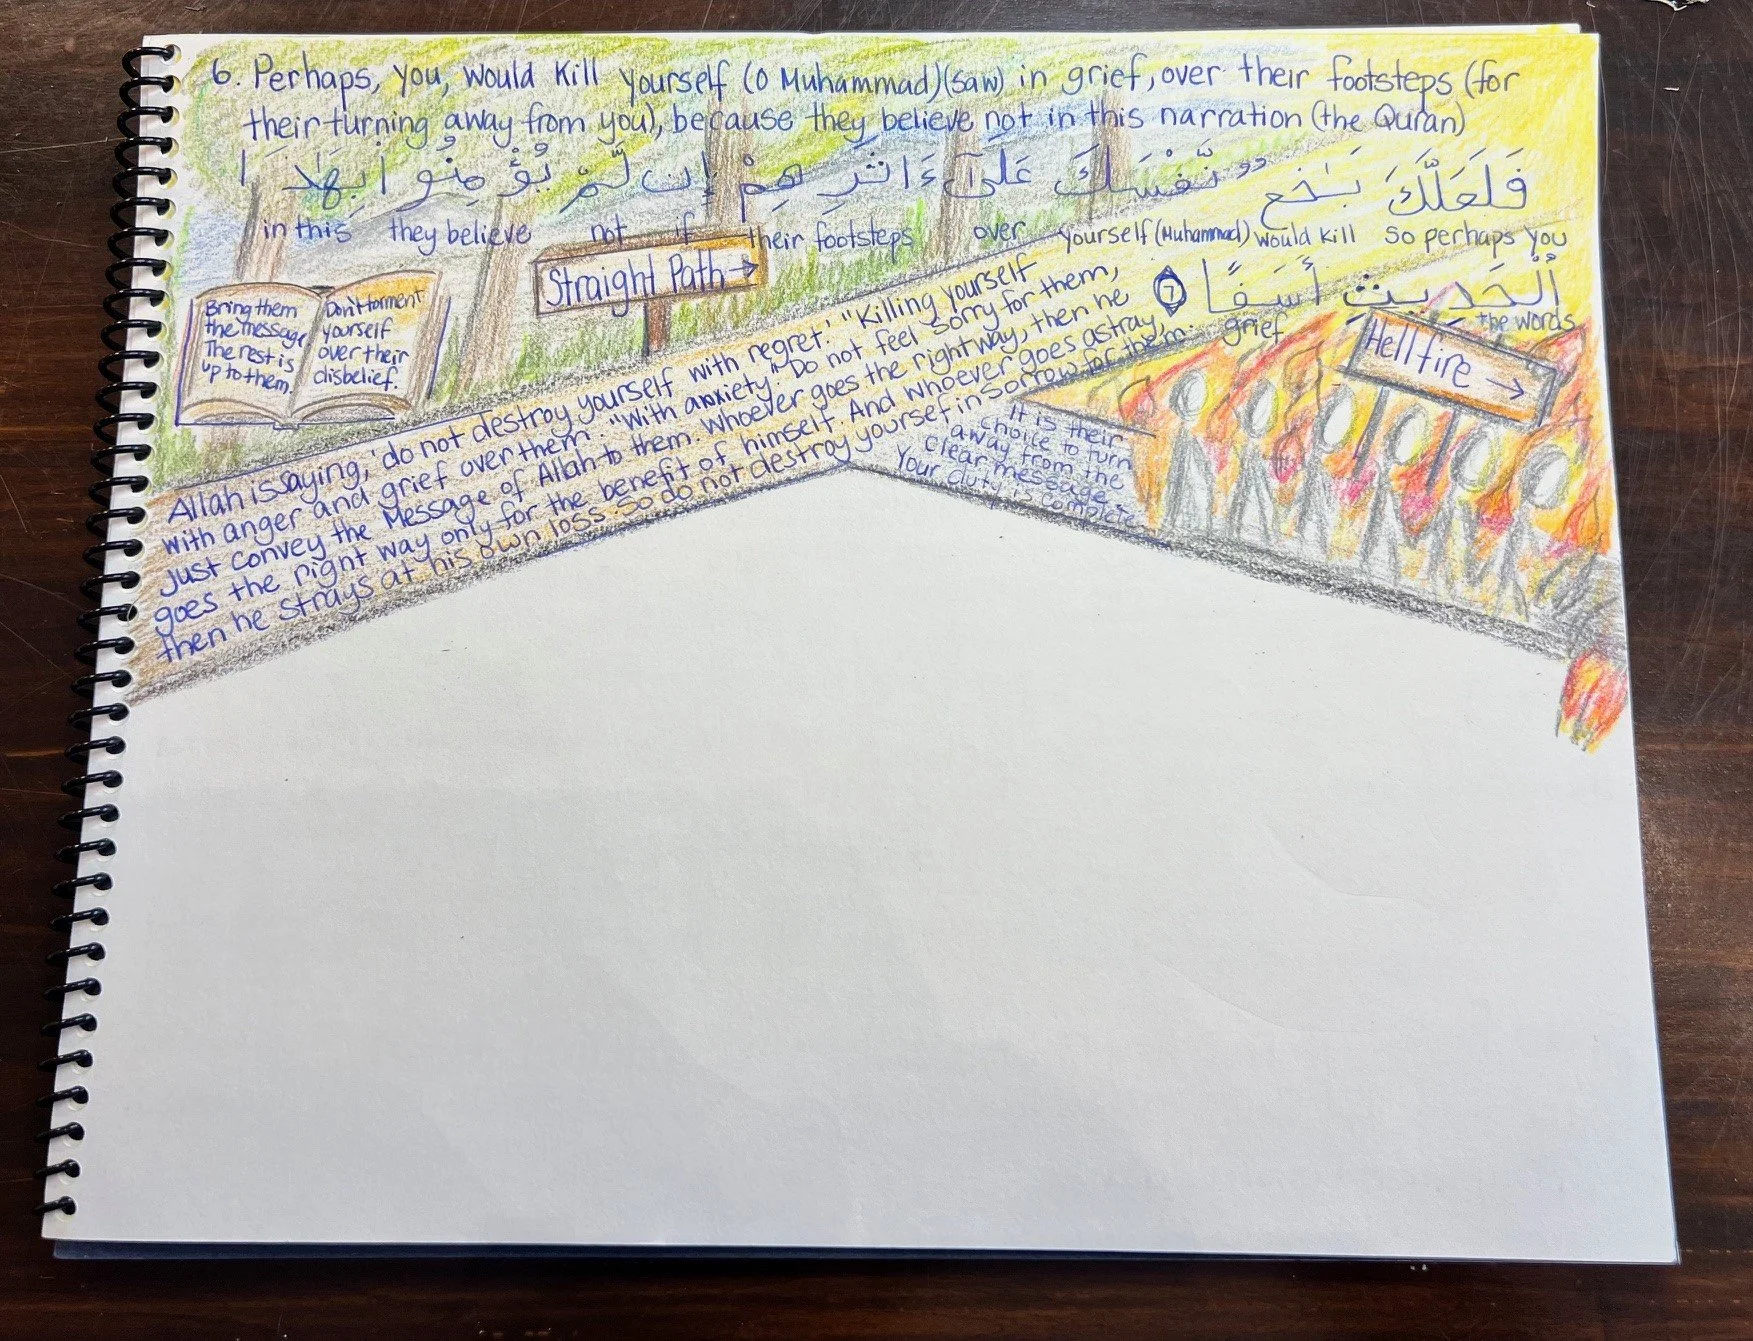 6. Perhaps, you, would kill yourself (O Muhammad)(saw) in grief, over their footsteps (for
their turning away from you), because they believe not in this narration (the Quran)
فَلَعَلَّكَ بَـٰخِعٌ نَّفْسَكَ عَلَىٰٓ ءَاثَـٰرِهِمْ إِن لَّمْ يُؤْمِنُوا۟ بِهَـٰذَا
in this they believe not if their footsteps over yourself (Muhammad) would kill so perhaps you
ٱلْحَدِيثِ أَسَفًا
the words grief
Straight Path →
Bring them
the message
The rest is
up to them.
Don't torment
yourself
over their
disbelief.
Allah is saying, 'do not destroy yourself with regret.' "Killing yourself
with anger and grief over them". "With anxiety." Do not feel sorry for them,
just convey the Message of Allah to them. Whoever goes the right way, then he
goes the right way only for the benefit of himself. And whoever goes astray,
then he strays at his own loss. So do not destroy yourself in sorrow for them.
Hellfire →
It is their
choice to turn
away from the
clear message.
Your duty is complete